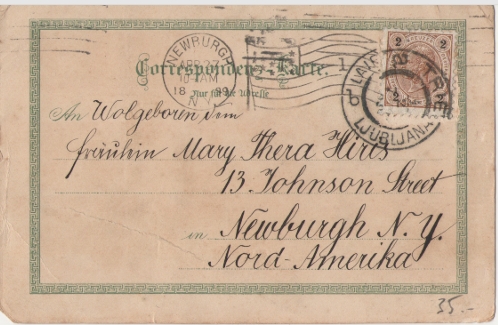 NEWBURGH
10 AM
18 99
N.Y.
1
2 2
LJUBLJANA
Correspondenz-Karte.
Nur für die Adresse
An Wolgeboren dem
Fräulein Mary Thera Hirts
13 Johnson Street
in Newburgh N. Y.
Nord-Amerika
35.-